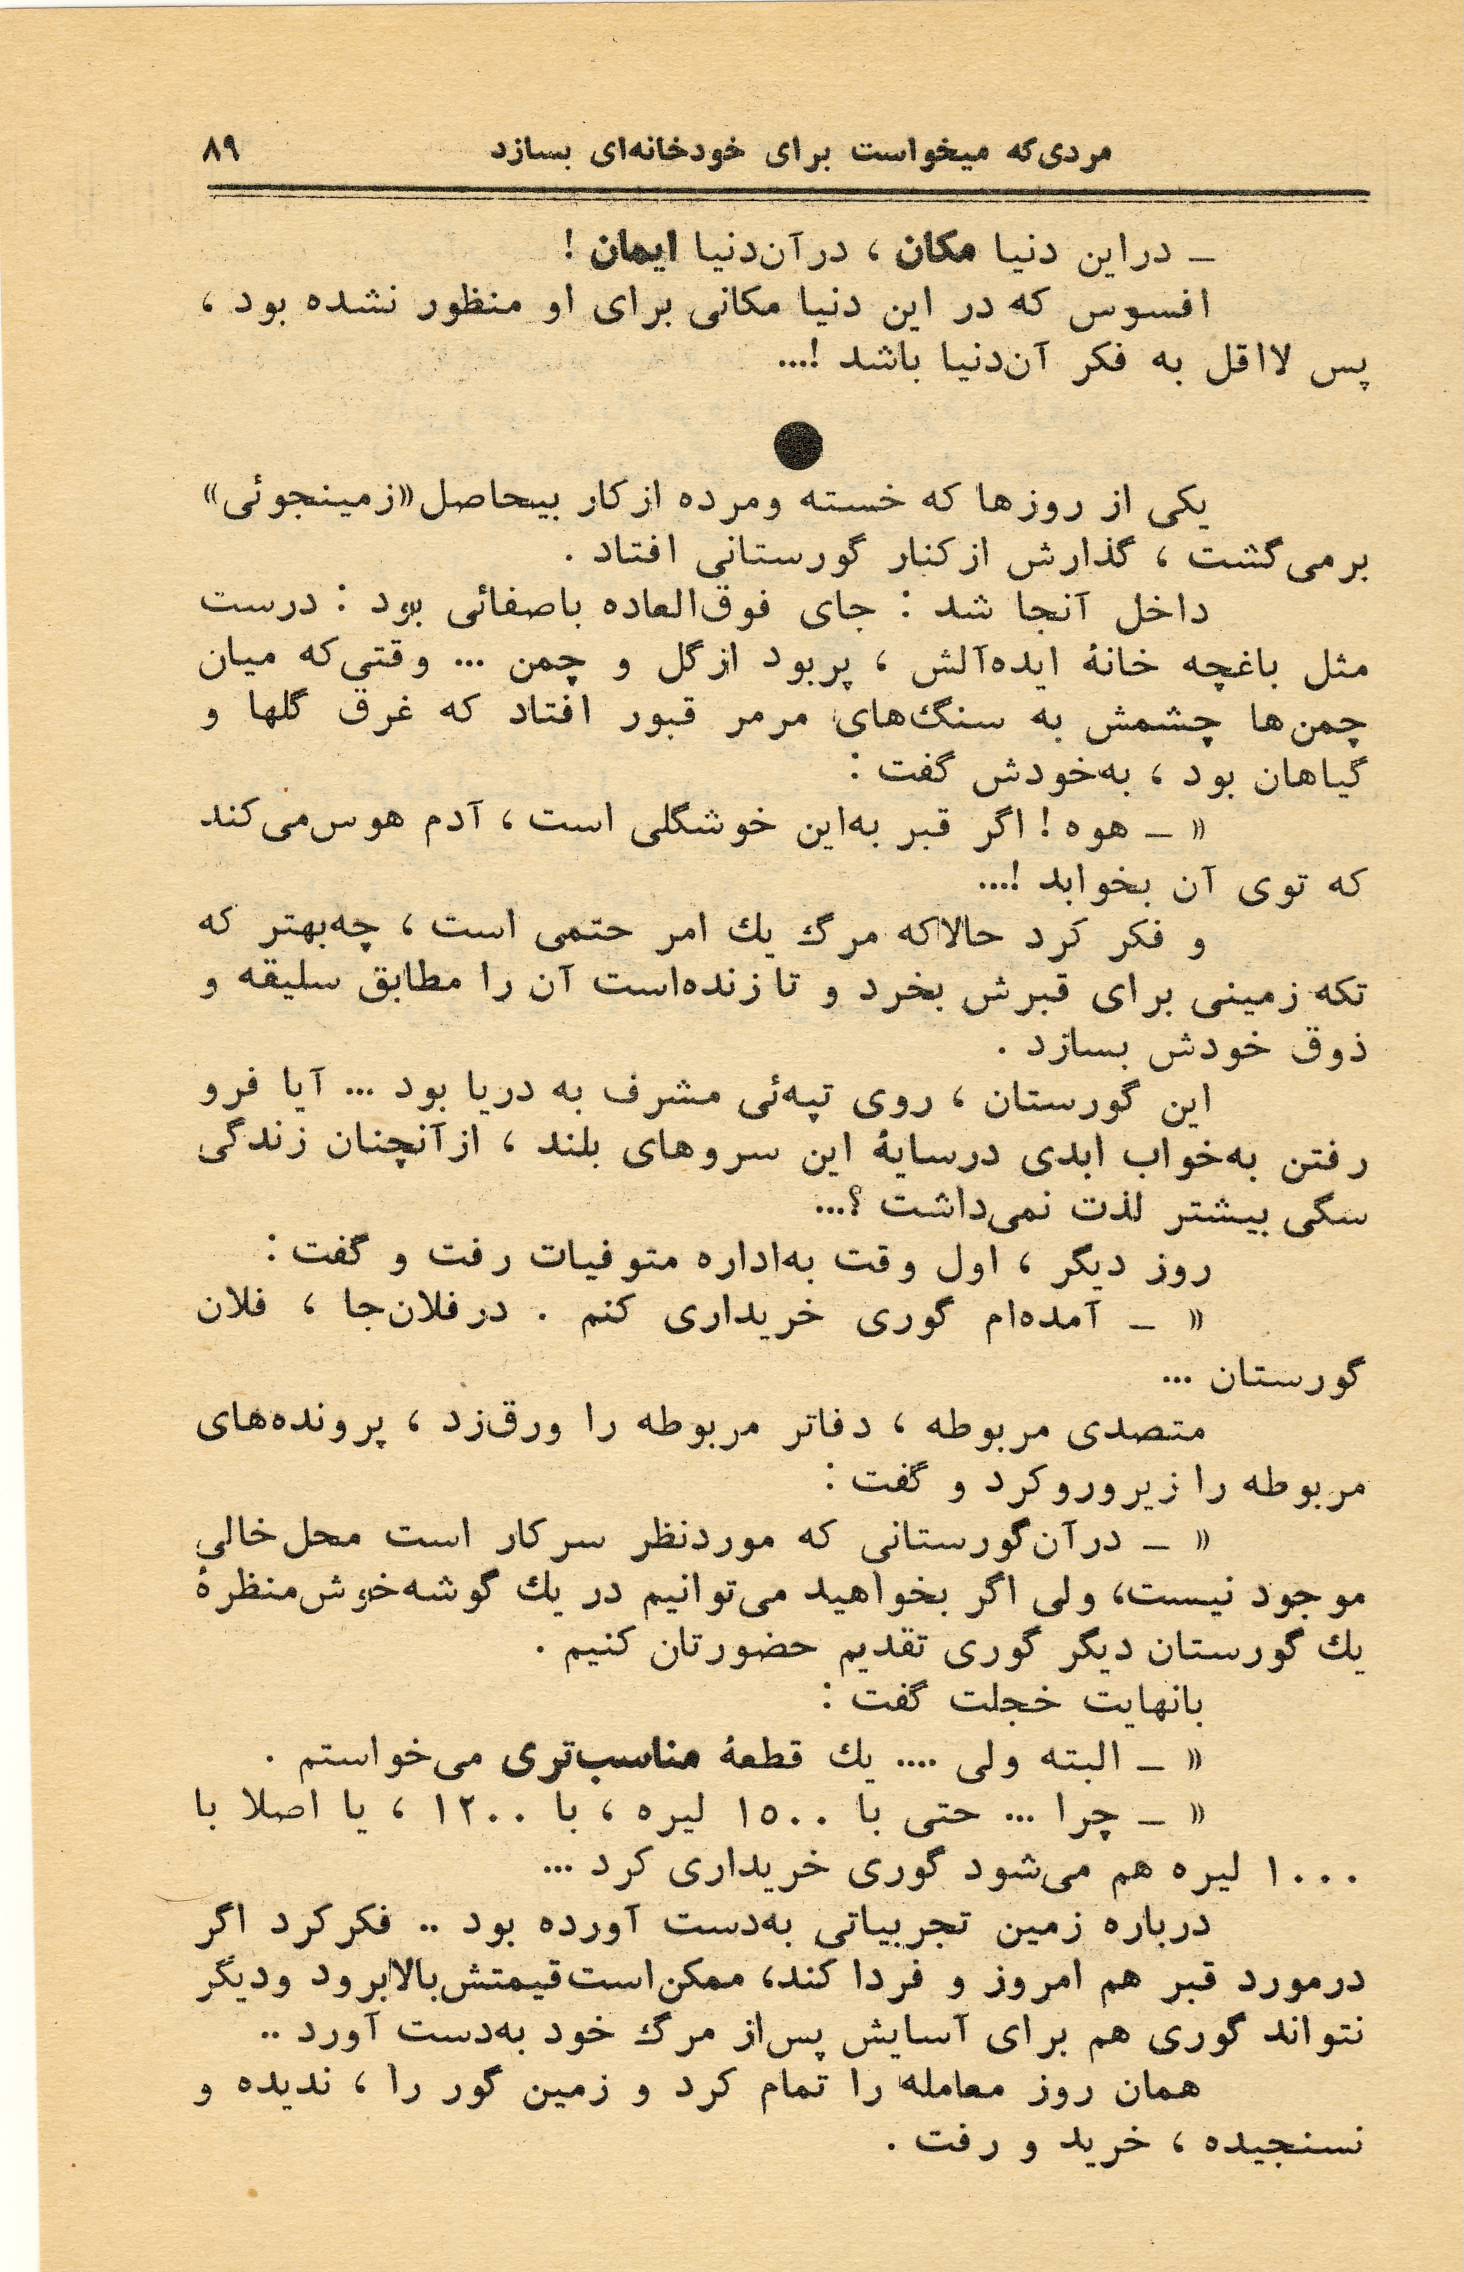 مردی‌که میخواست برای خودخانه‌ای بسازد ۸۹
ـ دراین دنیا مکان ، درآن‌دنیا ایمان !
افسوس که در این دنیا مکانی برای او منظور نشده بود ،
پس لااقل به فکر آن‌دنیا باشد !...
●
یکی از روزها که خسته ومرده ازکار بیحاصل «زمینجوئی»
برمی‌گشت ، گذارش ازکنار گورستانی افتاد .
داخل آنجا شد : جای فوق‌العاده باصفائی بود : درست
مثل باغچه خانهٔ ایده‌آلش ، پربود ازگل و چمن ... وقتی‌که میان
چمن‌ها چشمش به سنگ‌های مرمر قبور افتاد که غرق گلها و
گیاهان بود ، به‌خودش گفت :
« ـ هوه ! اگر قبر به‌این خوشگلی است ، آدم هوس‌می‌کند
که توی آن بخوابد !...
و فکر کرد حالاکه مرگ یك امر حتمی است ، چه‌بهتر که
تکه زمینی برای قبرش بخرد و تا زنده‌است آن را مطابق سلیقه و
ذوق خودش بسازد .
این گورستان ، روی تپه‌ئی مشرف به دریا بود ... آیا فرو
رفتن به‌خواب ابدی درسایهٔ این سروهای بلند ، ازآنچنان زندگی
سگی بیشتر لذت نمی‌داشت ؟...
روز دیگر ، اول وقت به‌اداره متوفیات رفت و گفت :
« ـ آمده‌ام گوری خریداری کنم . درفلان‌جا ، فلان
گورستان ...
متصدی مربوطه ، دفاتر مربوطه را ورق‌زد ، پرونده‌های
مربوطه را زیروروکرد و گفت :
« ـ درآن‌گورستانی که موردنظر سرکار است محل‌خالی
موجود نیست، ولی اگر بخواهید می‌توانیم در یك گوشه‌خوش‌منظرهٔ
یك گورستان دیگر گوری تقدیم حضورتان کنیم .
بانهایت خجلت گفت :
« ـ البته ولی .... یك قطعهٔ مناسب‌تری می‌خواستم .
« ـ چرا ... حتی با ۱۵۰۰ لیره ، با ۱۲۰۰ ، یا اصلا با
۱۰۰۰ لیره هم می‌شود گوری خریداری کرد ...
درباره زمین تجربیاتی به‌دست آورده بود .. فکرکرد اگر
درمورد قبر هم امروز و فردا کند، ممکن‌است‌قیمتش‌بالابرود ودیگر
نتواند گوری هم برای آسایش پس‌از مرگ خود به‌دست آورد ..
همان روز معامله را تمام کرد و زمین گور را ، ندیده و
نسنجیده ، خرید و رفت .